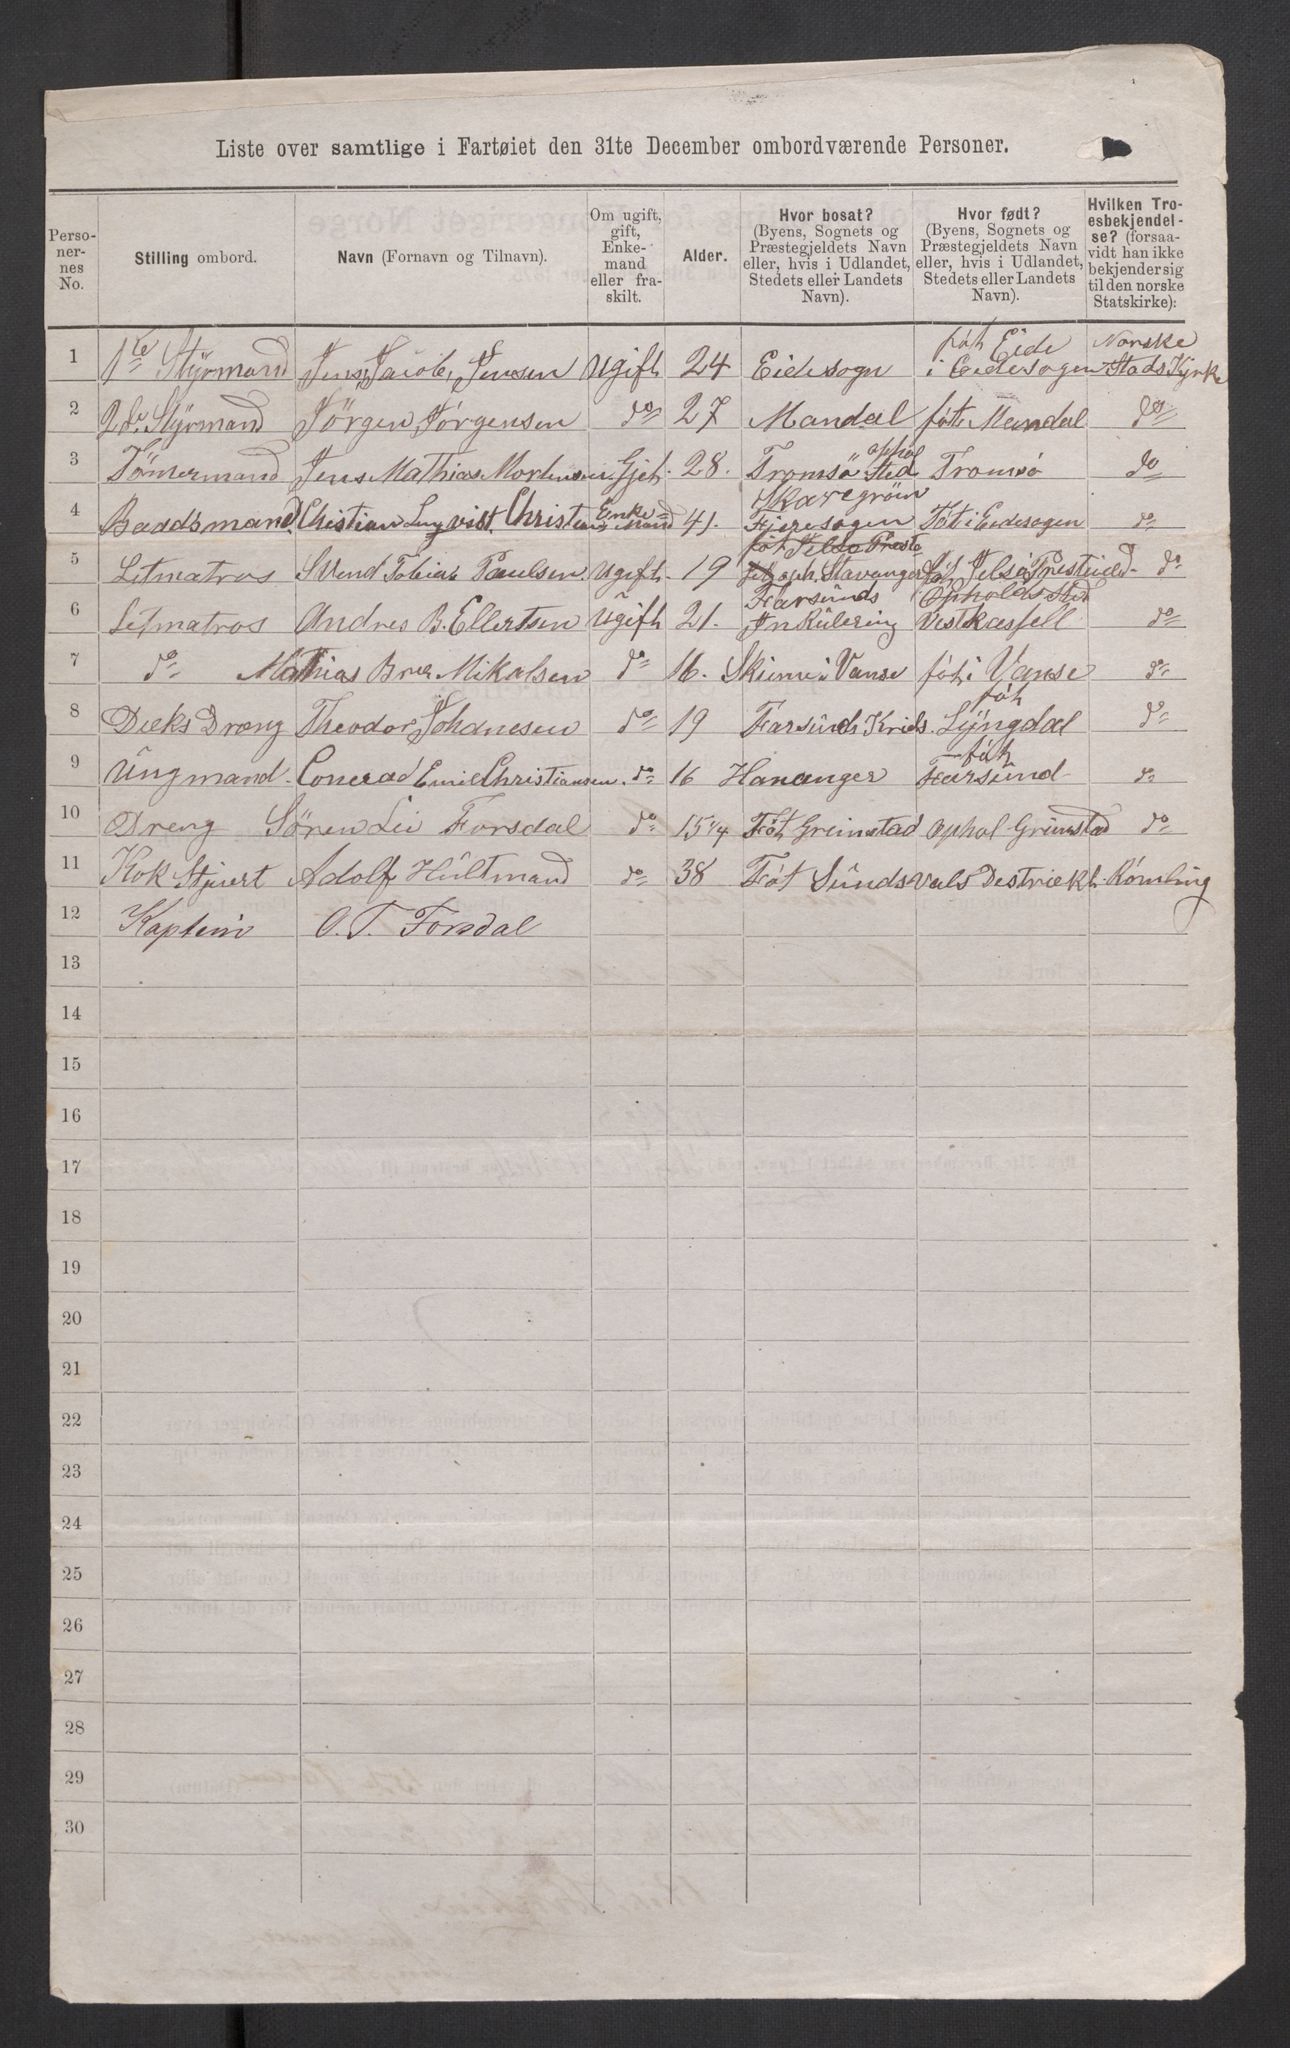 Liste over samtlige i Fartøiet den 31te December ombordværende Personer.
Personernes No. | Stilling ombord. | Navn (Fornavn og Tilnavn). | Om ugift, gift, Enkemand eller fraskilt. | Alder. | Hvor bosat? (Byens, Sognets og Præstegjeldets Navn eller, hvis i Udlandet, Stedets eller Landets Navn). | Hvor født? (Byens, Sognets og Præstegjeldets Navn eller, hvis i Udlandet, Stedets eller Landets Navn). | Hvilken Troesbekjendelse? (forsaavidt han ikke bekjender sig til den norske Statskirke):
1 | 1te Styrmand | Jens Jacob Jensen | Ugift | 24 | Eidesogn | føt Eide i Eidesogen | Norske Stads Kyrke
2 | 2de Styrmand | Jörgen Jørgensen | do | 27 | Mandal | føt Mandal | do
3 | Tömermand | Jens Mathias Mortensen | Gjet | 28. | Tromsö ophol Sted | Tromsø | do
4 | Baadsmand. | Chistian Lenqvist Christens | Enkemand | 41. | Skaregrön Fjeresogen | Føt i Eidesogen | do
5 | Letmatros | Svend Tobias Paulsen. | Ugift. | 19 | oph. Stavanger | føt Jelsø Presteield | do
6 | Letmatros | Andres B. Ellertsen | Ugift | 21. | Farsunds InRulering | Opholds Sted Vestkassfell | do
7 | do | Mathias Brer Mikalsen | do | 16. | Skeime i Vanse | føt i Vanse | do
8 | Dæks Dræng | Theodor Johanesen | do | 19 | Farsunds Krids. | føt Lyngdal | do
9 | Ungmand. | Conerad Emil Christiansen. | do | 16 | Hananger | føt Farsund | do
10 | Dreng | Sören Lei Forsdal | do | 15 1/4 | Føt Greimstad | Ophol Grimstad | do
11 | Kok Stjuert | Adolf Hultmand | do | 38 | Føt Sundsvals Destriekt. | Römling
12 | Kaptein | O. T. Forsdal
13
14
15
16
17
18
19
20
21
22
23
24
25
26
27
28
29
30